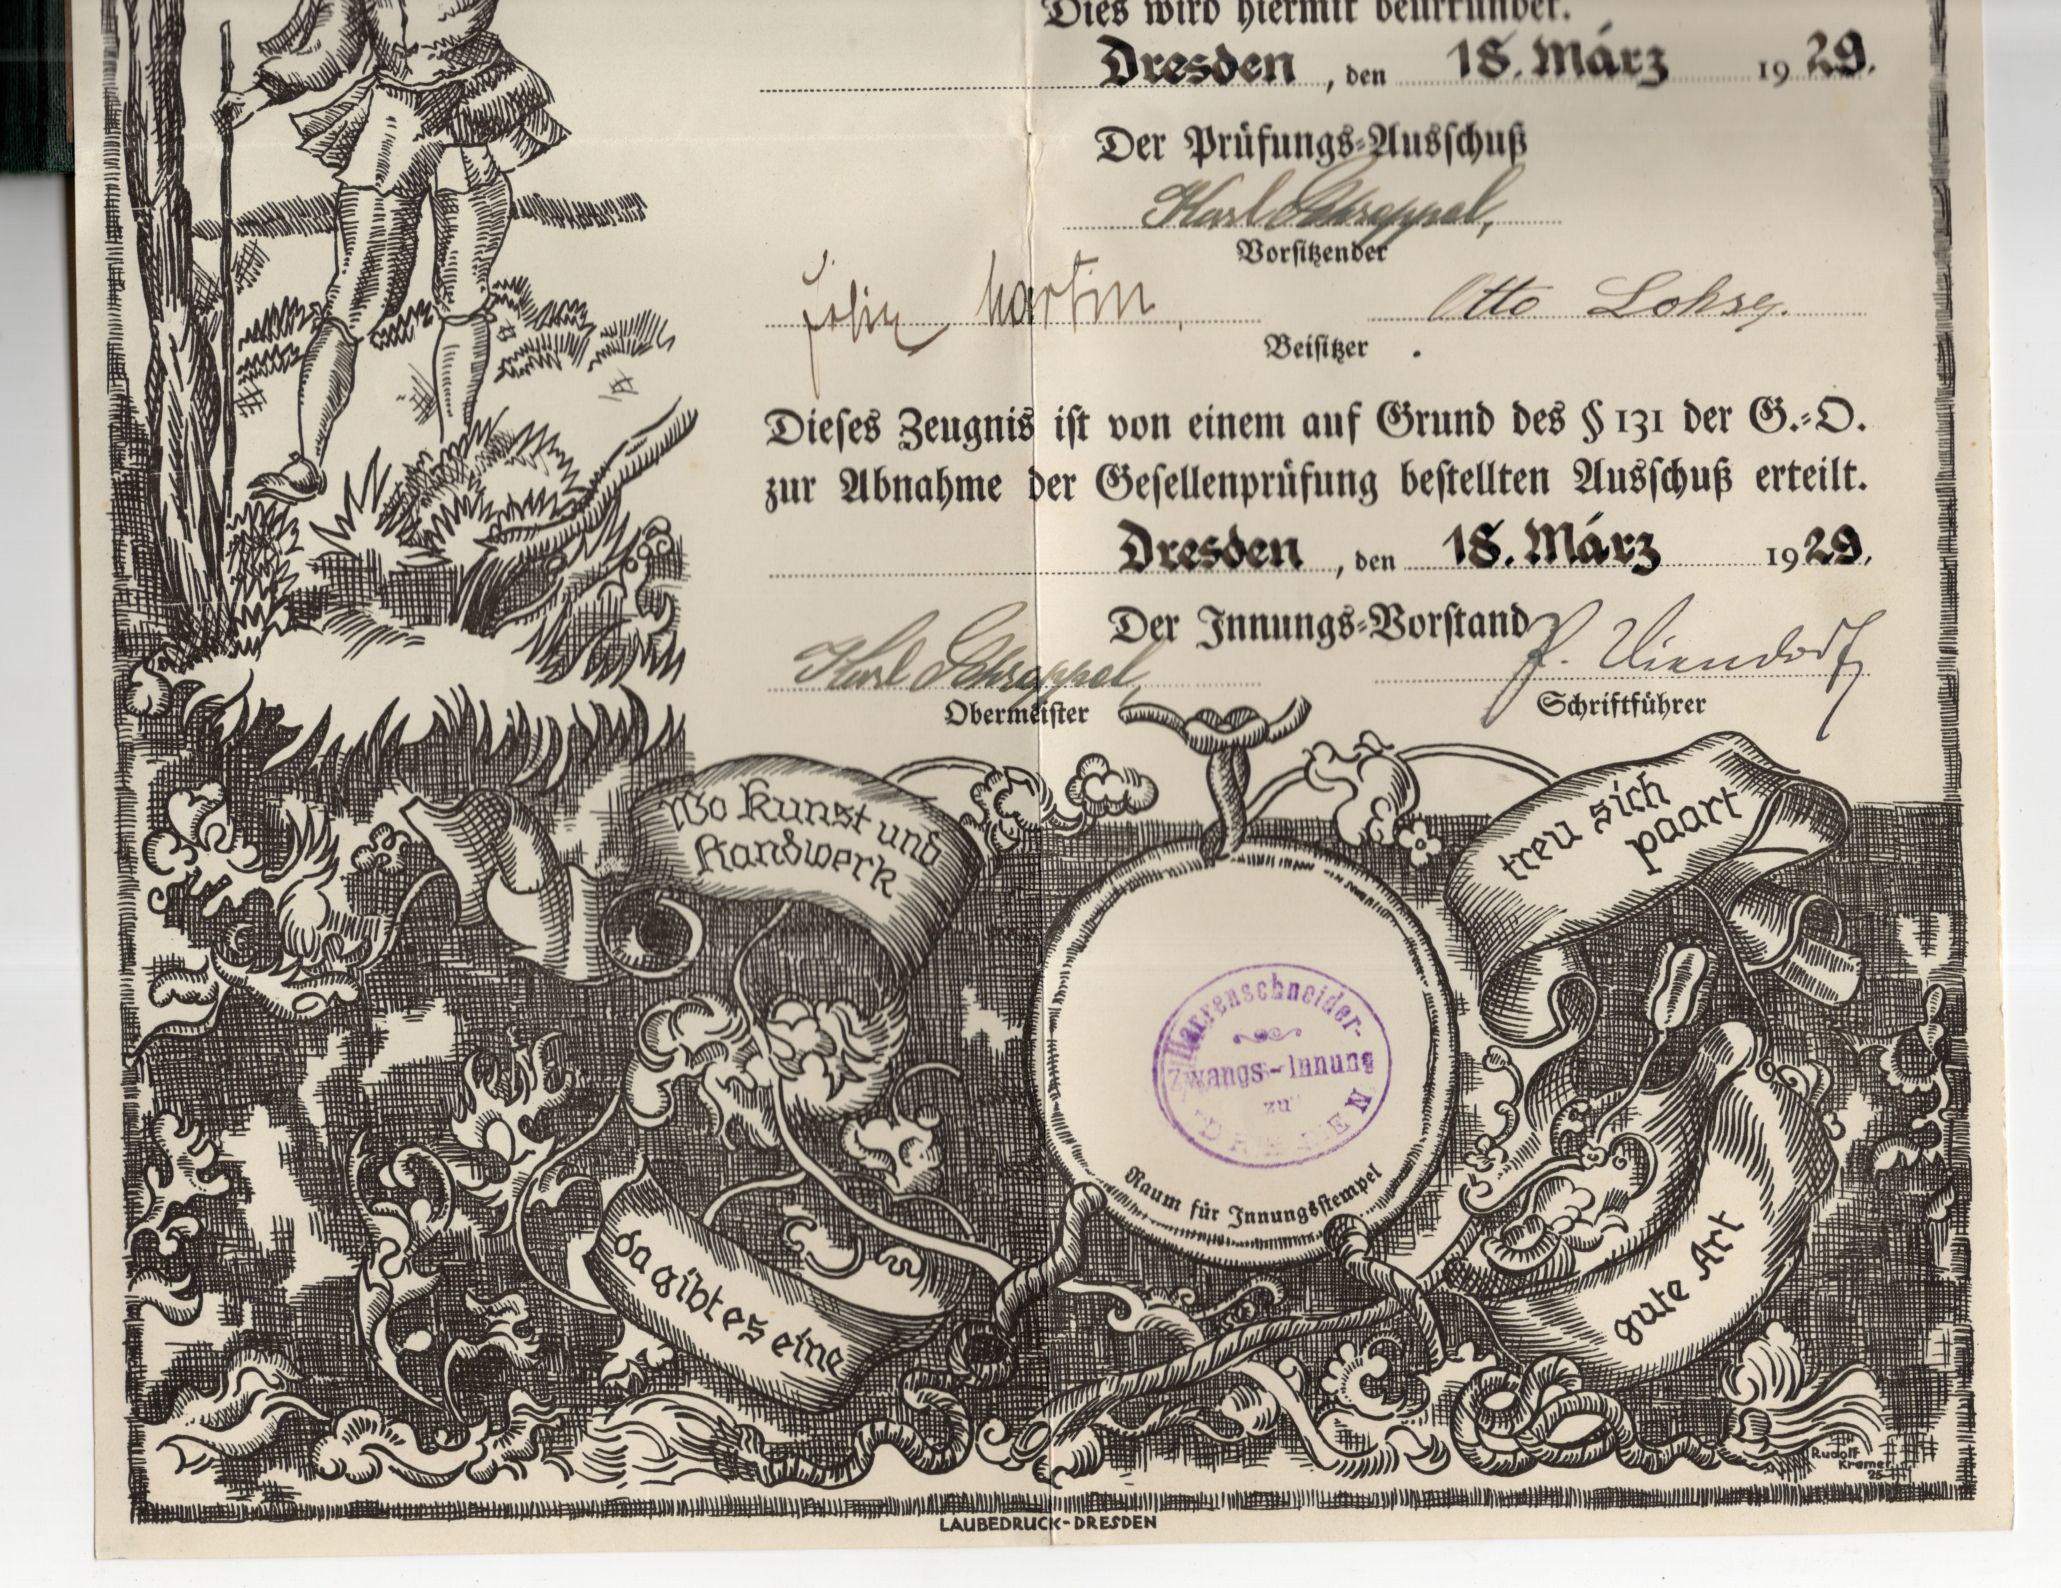 Dies wird hiermit beurkundet.
Dresden, den 18. März 1929.
Der Prüfungs-Ausschuß
Karl Schreppel,
Vorsitzender
Felix Martin, Otto Lohse.
Beisitzer
Dieses Zeugnis ist von einem auf Grund des § 131 der G.-O.
zur Abnahme der Gesellenprüfung bestellten Ausschuß erteilt.
Dresden, den 18. März 1929.
Der Innungs-Vorstand
Karl Schreppel,
Obermeister Schriftführer
Wo Kunst und
Handwerk
treu sich
paart
Herrenschneider-
Zwangs-Innung
zu
DRESDEN
Raum für Innungsstempel
da gibt es eine
gute Art
Rudolf
Kramer
25
LAUBEDRUCK-DRESDEN